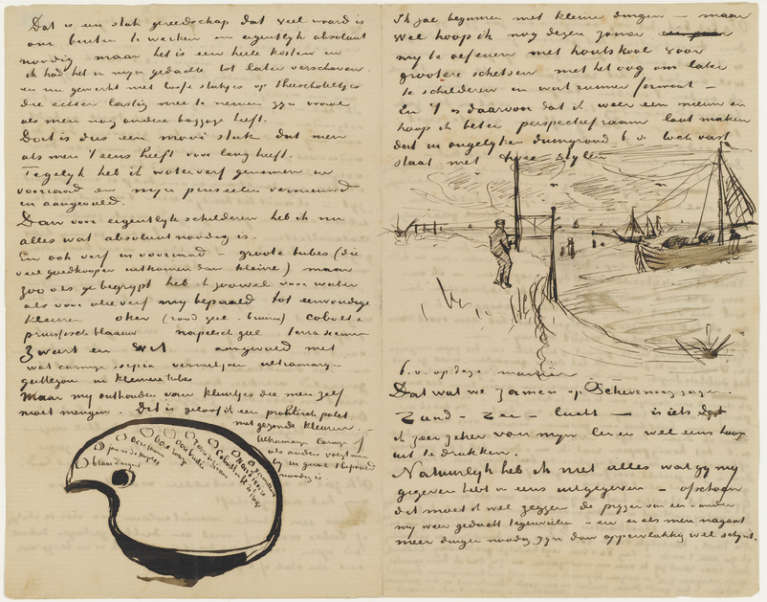 Dat is een stuk gereedschap dat veel waard is
om buiten te werken en eigentlijk absoluut
noodig maar het is een heele kosten en
ik had het in mijn gedachte tot later verschoven
en nu gewerkt met losse stukjes op
die echter lastig mee te nemen zijn vooral
als men nog andere bagage heeft.
Doch is dus een mooi stuk dat men
als men 't eens heeft voor lang heeft.
Tegelijk heb ik waterverf genomen en
voorraad en mijn penseelen vernieuwd
en aangevuld.
Dan voor eigentlijk schilderen heb ik nu
alles wat absoluut noodig is.
En ook verf in voorraad – groote tubes (die
veel goedkooper uitkomen dan kleine) maar
zoo als ge begrypt heb ik zoowel voor water
als voor olieverf my bepaald tot eenvoudige
kleuren oker (rood geel bruin) cobolt &
pruisisch blaauw napelsch geel terra sienna
Zwart en Wit aangevuld met
wat carmyn sepia vermiljoen ultramaryn
guttegom in kleinere tubes
Maar my onthouden van kleurtjes die men zelf
moet mengen. Dit is geloof ik een praktisch palet
met gezonde kleuren. –
Ultramaryn Carmyn of
als anders voegt men
by in geval 't bepaald
noodig is
Ik zal beginnen met kleine dingen – maar
wel hoop ik nog dezen zomer
my te oefenen met houtskool voor
grootere schetsen met het oog om later
te schilderen en wat ruimer formaat –
En 't is daarvoor dat ik weer een nieuw en
hoop ik beter perspectiefraam laat maken
dat in ongelyken duingrond b.v. toch vast
staat met twee stylen
b.v. op deze manier
Dat wat we zamen op Scheveningen zagen
Zand – Zee – lucht – is iets dat
ik zeer zeker van myn leven wel eens hoop
uit te drukken.
Natuurlyk heb ik niet alles wat gy my
gegeven hebt in eens uitgegeven – ofschoon
dat moet ik wel zeggen de pryzen van een & ander
my weer geducht tegenvielen – en er als men nagaat
meer dingen noodig zyn dan oppervlakkig wel schynt.